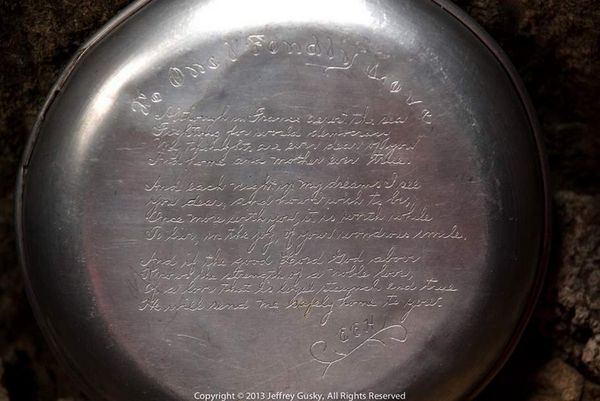 To One I Fondly Love
Although in France across the sea
Fighting for world democracy
My thoughts, are ever dear of you
And home and mother ever true.
And each night in my dreams I see
you dear, and how I wish to be,
Once more with you, it is worth while
To live, in the joy, of your wondrous smile,
And if the good Lord God above
Knows the strength of a noble love,
Of a love that is eternal and true
He will send me safely home to you.
CEH
Copyright © 2013 Jeffrey Gusky, All Rights Reserved